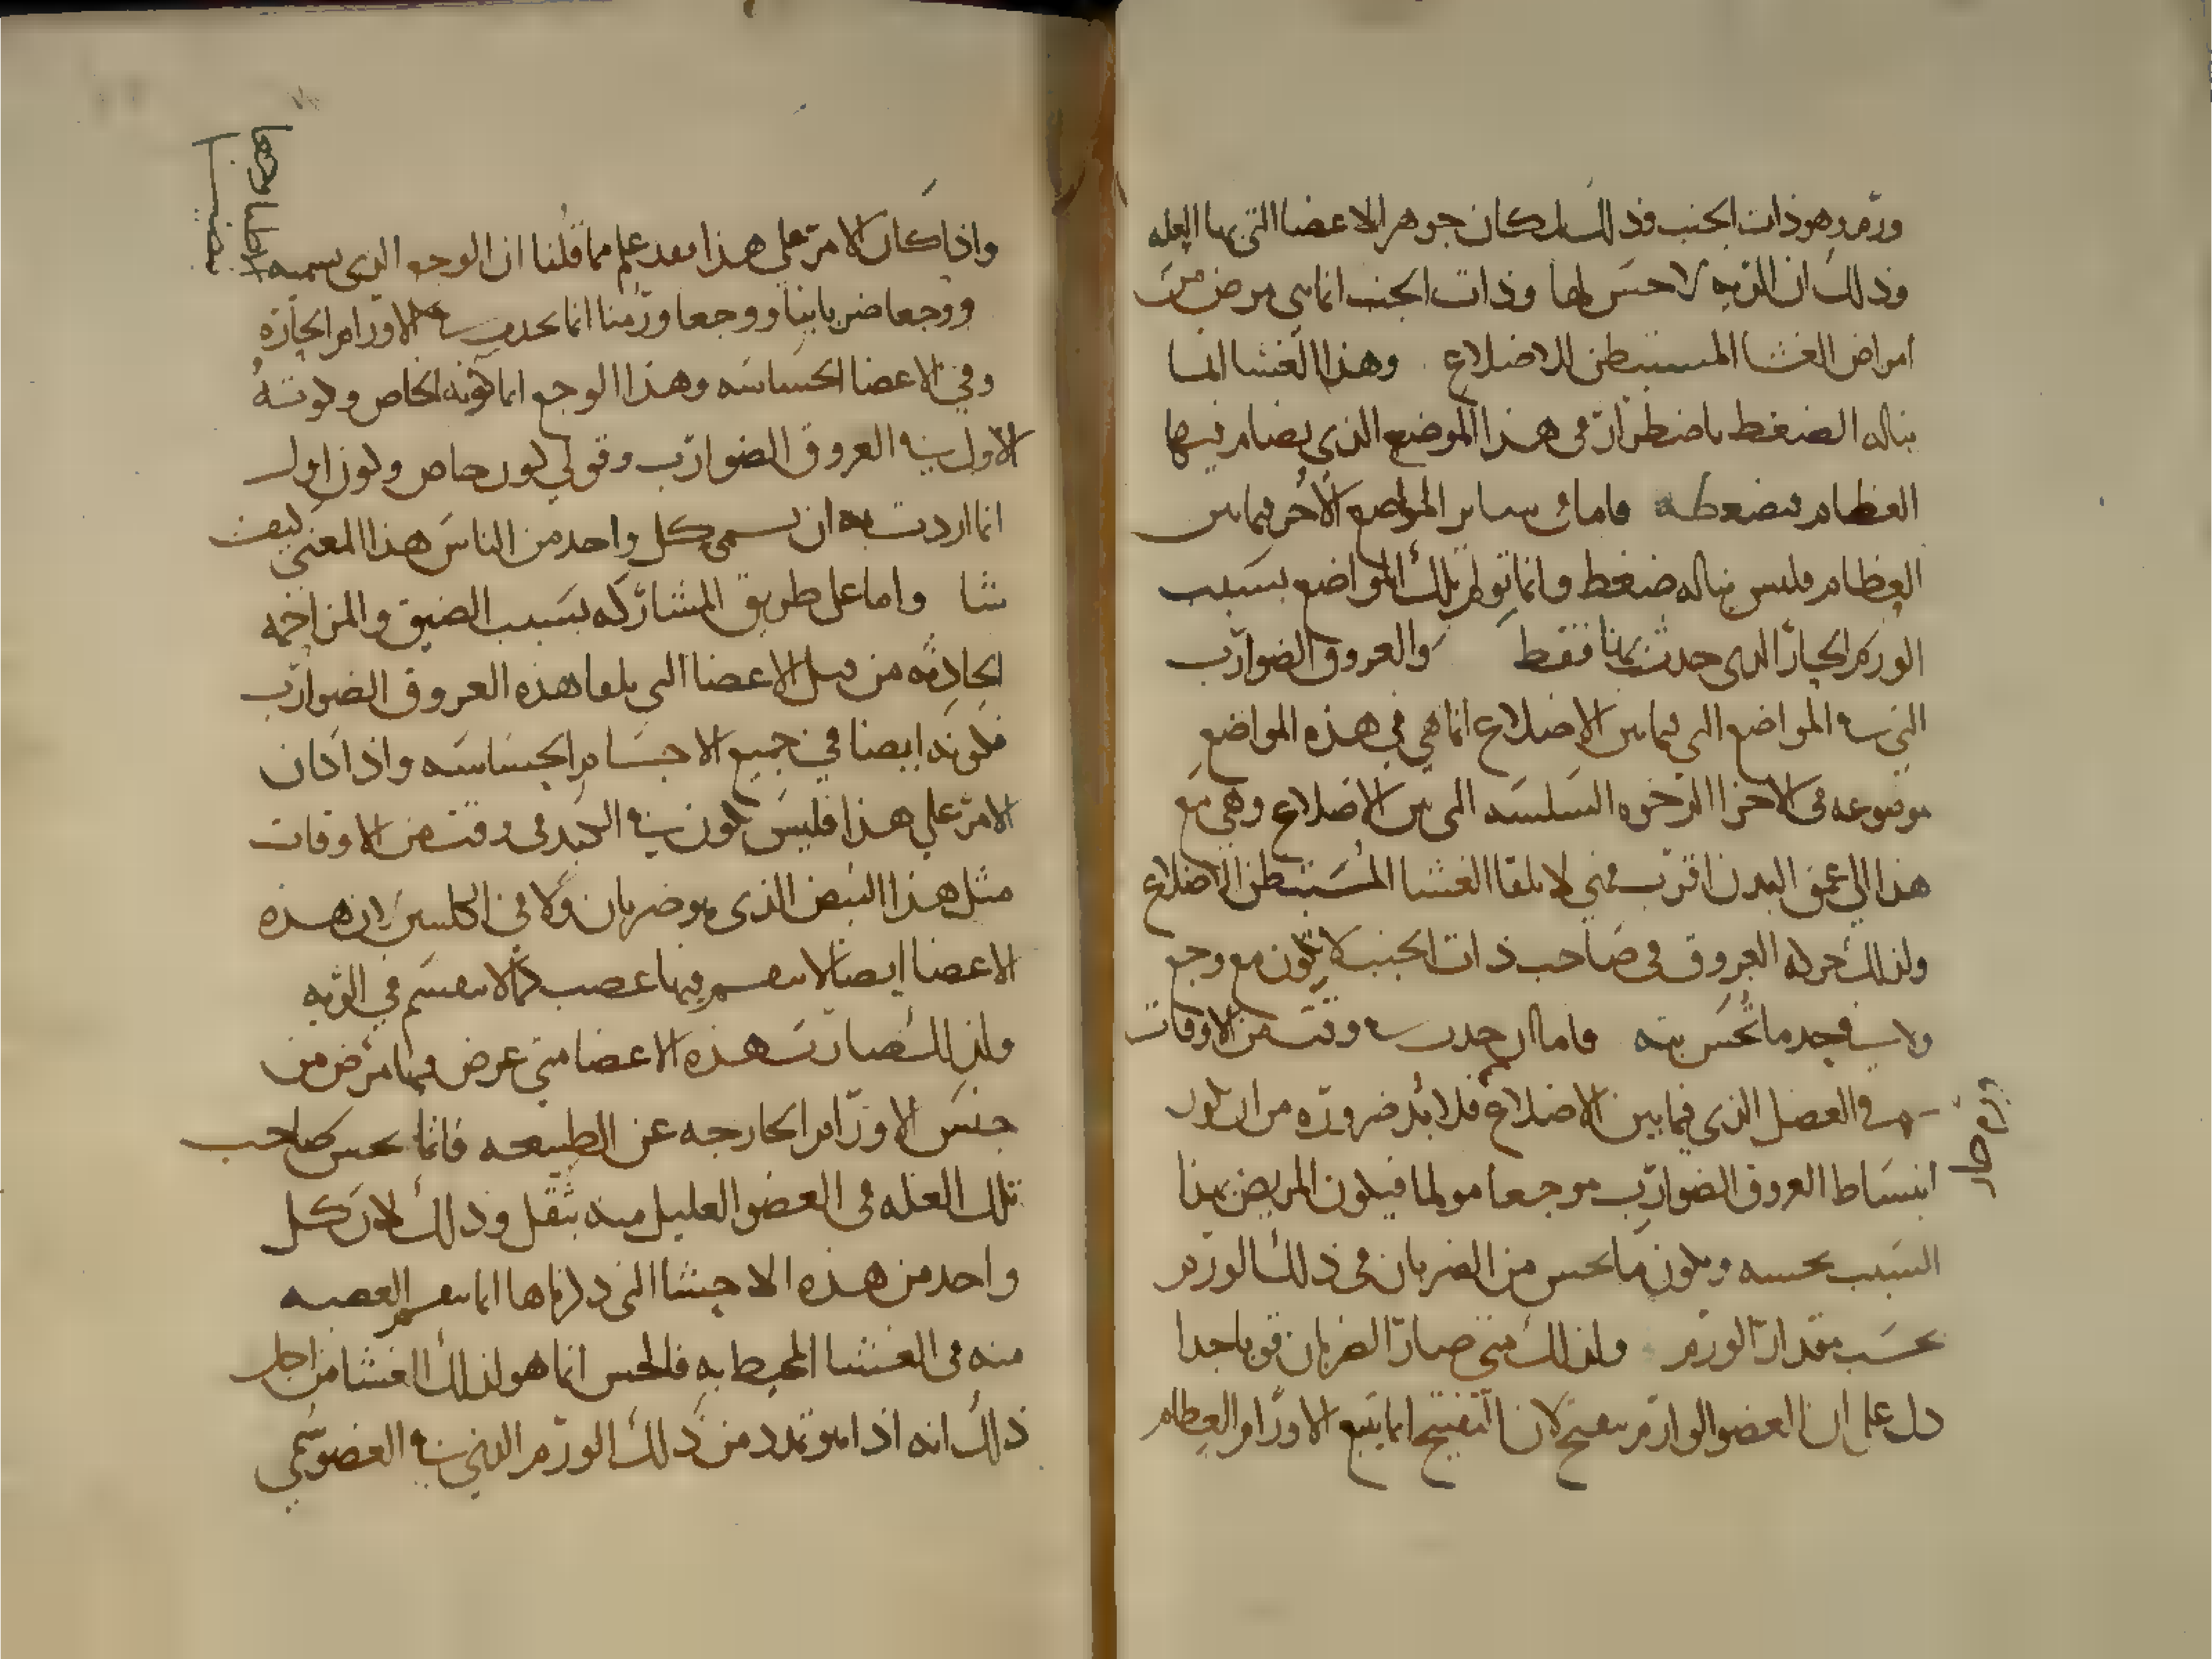 ورم وهو ذات الجنب فذلك لمكان جوهر الاعضا التي بها العله
وذلك ان الريه لا حس لها وذات الجنب انما هي مرض من
امراض الغشا المستبطن للاضلاع وهذا الغشا انما
يناله الضغط باضطرار في هذا الموضع الذي يصام فيها
العظام فتضغطه فاما في ساير المواضع الاخر فيما بين
العظام فليس يناله ضغط وانما تولم تلك المواضع بسبب
الورم الحار الذي حدث بها فقط والعروق الضوارب
التي في المواضع التي فيما بين الاضلاع انما هي في هذه المواضع
موضوعه في الاجزا الرخوه السلسه التي بين الاضلاع وهي مع
هذا الي عمق البدن اقرب فهي لا تلقا الغشا المستبطن الاضلاع
ولذلك حركه العروق في صاحب ذات الجنب لا تكون مع وجع
ولا يوجد ما تحس به فاما ان حدث في وقت من الاوقات
في العضل الذي فيما بين الاضلاع فلا بد ضروره من ان يكون
ورم حار
انبساط العروق الضوارب موجعا مولما فيكون المريض بهذا
السبب يحسه ويكون ما يحس من الضربان في ذلك الورم
بحسب مقدار الورم ولذلك متي صار الضربان قويا جدا
دل علي ان العضو الوارم يتقيح لان التقيح انما يتبع الاورام العظام
واذا كان الامر علي هذا فقد علم مما قلنا ان الوجع الذي يسميه
ووجعا ضربانيا ووجعا ورمنا انما يحدث في الاورام الحاره
وفي الاعضا الحساسه وهذا الوجع اما كونه الخاص وكونه
الاول ففي العروق الضوارب وقولي كون خاص وكون اول
انما اردت به ان يسمي كل واحد من الناس هذا المعني كيف
شا واما علي طريق المشاركه بسبب الضيق والمزاحمه
الحادثه من قبل الاعضا التي تلقاها هذه العروق الضوارب
فكونه ايضا في جميع الاجسام الحساسه واذا كان
الامر علي هذا فليس يكون في الكبد في وقت من الاوقات
مثل هذا النبض الذي هو ضربان ولا في الكليتين لان هذه
الاعضا ايضا لا ينقسم فيها عصب كما لا ينقسم في الريه
ولذلك صارت هذه الاعضا متي عرض فيها مرض من
جنس الاورام الخارجه عن الطبيعه فانما يحس صاحب
تلك العله في العضو العليل منه بثقل وذلك لان كل
واحد من هذه الاحشا التي ذكرناها انما ينقسم العصبه
منه في الغشا المحيط به فالحس انما هو لذلك الغشا من اجل
ذلك انه اذا هو تمدد من ذلك الورم الذي في العضو سمي